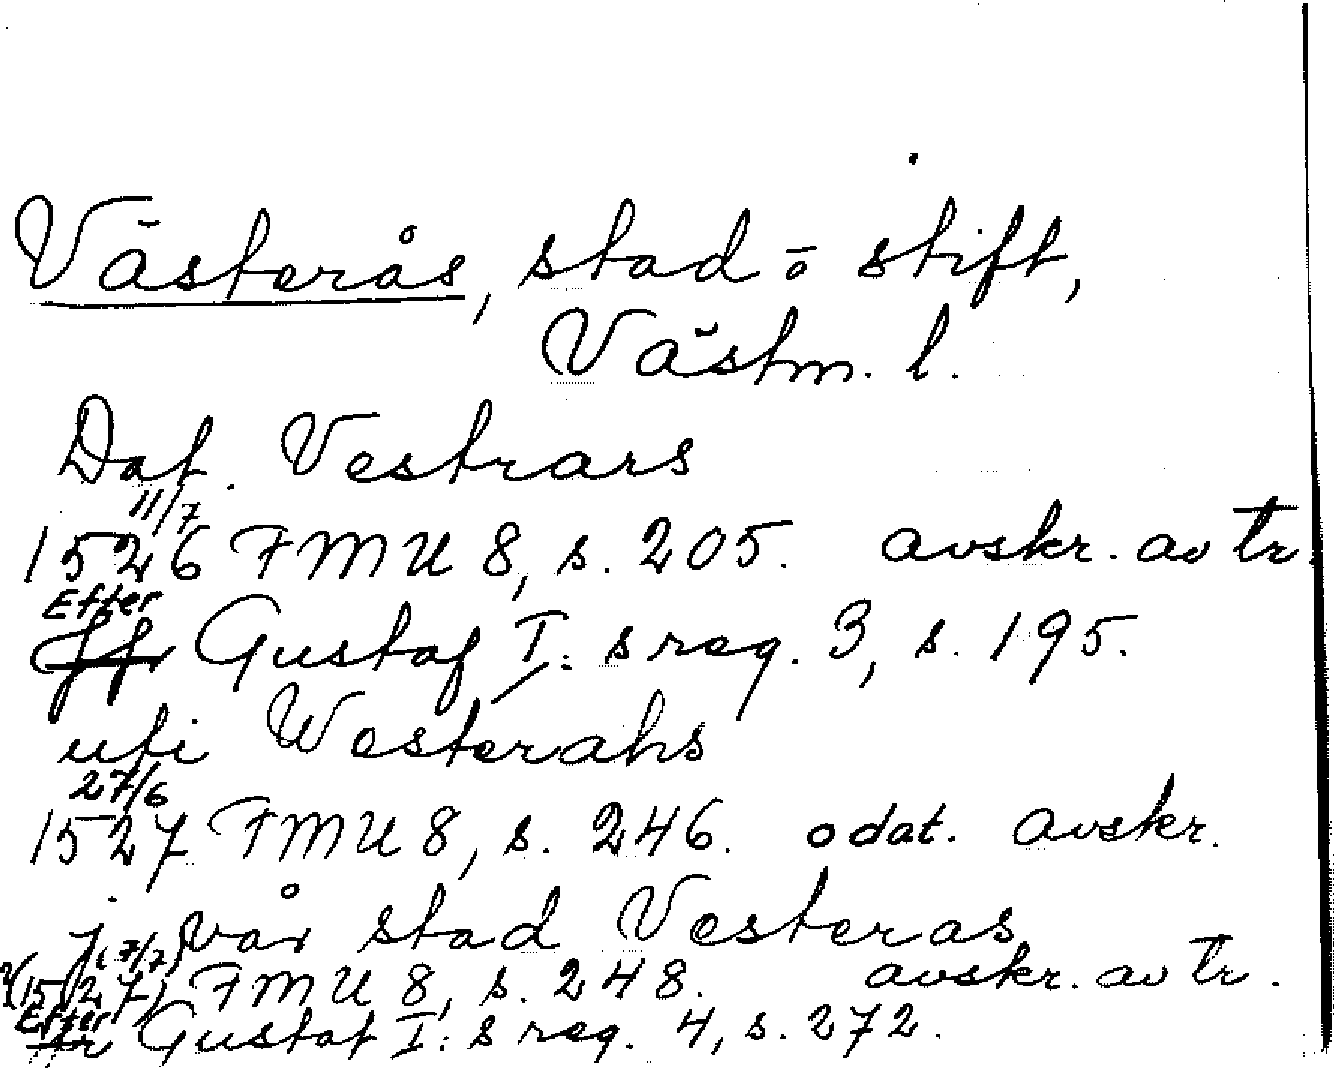 Västerås, stad o stift,
Västm. l.
Dat. Vestrars
11/7
1526 FMU 8, s. 205. avskr. av tr.
Efter
Gustaf I:s reg. 3, s. 195.
uti Westerahs
27/6
1527 FMU 8, s. 246. odat. avskr.
j vår stad Vesteras
(7/7)
(1527) FMU 8, s. 248. avskr. av tr.
Efter Gustaf I:s reg. 4, s. 272.